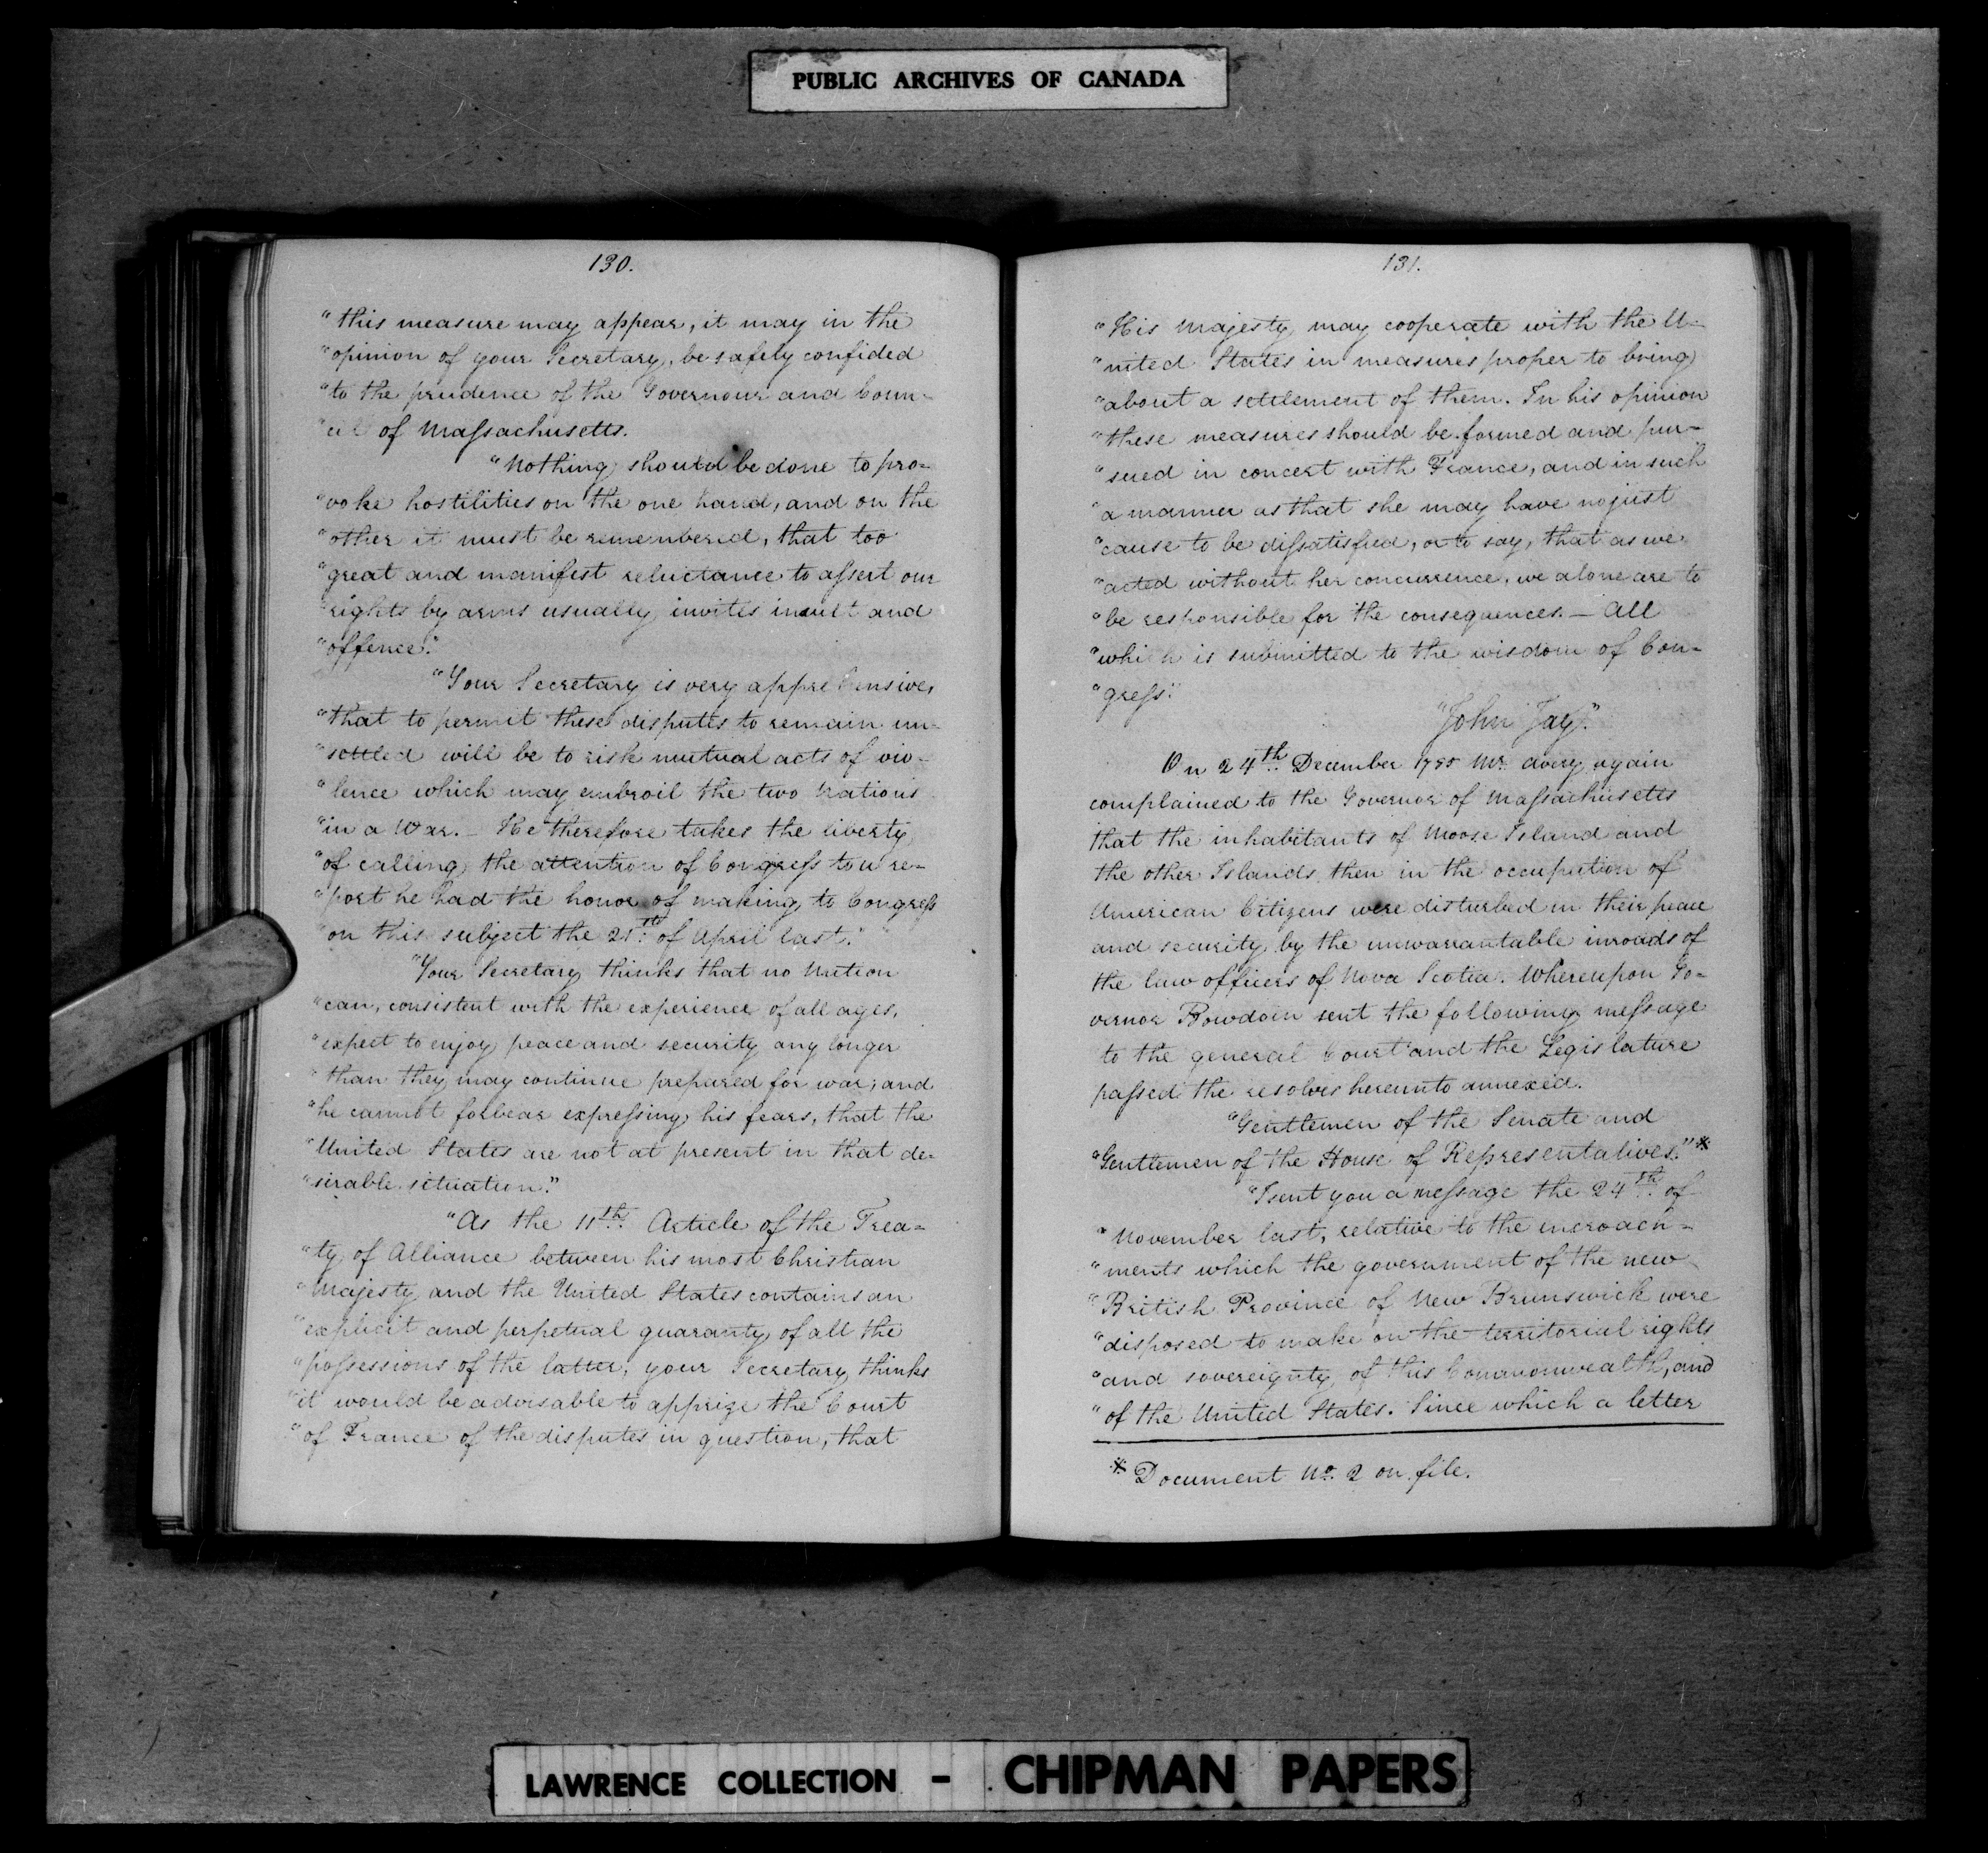 PUBLIC ARCHIVES OF CANADA
130.
"this measure may appear, it may in the
"opinion of your Secretary, be safely confided
"to the prudence of the Governour and Coun-
"cil of Massachusetts.
"Nothing should be done to pro-
"voke hostilities on the one hand, and on the
"other it must be remembered, that too
"great and manifest reluctance to assert our
"rights by arms usually invites insult and
"offence."
"Your Secretary is very apprehensive,
"that to permit these disputes to remain un-
"settled will be to risk mutual acts of vio-
"lence which may embroil the two Nations
"in a War. – He therefore takes the liberty
"of calling the attention of Congress to a re-
"port he had the honor of making to Congress
"on this subject the 21st. of April last."
"Your Secretary thinks that no Nation
"can, consistent with the experience of all ages,
"expect to enjoy peace and security any longer
"than they may continue prepared for war; and
"he cannot forbear expressing his fears, that the
"United States are not at present in that de-
"sirable situation."
"As the 11th. Article of the Trea-
"ty of Alliance between his most Christian
"Majesty and the United States contains an
"explicit and perpetual guaranty of all the
"possessions of the latter, your Secretary thinks
"it would be advisable to apprize the Court
"of France of the disputes in question, that
131.
"His Majesty may cooperate with the U-
"nited States in measures proper to bring
"about a settlement of them. In his opinion
"these measures should be formed and pur-
"sued in concert with France, and in such
"a manner as that she may have no just
"cause to be dissatisfied, or to say, that as we
"acted without her concurrence, we alone are to
"be responsible for the consequences. – All
"which is submitted to the wisdom of Con-
"gress."
"John Jay."
On 24th. December 1785 Mr. Avery again
complained to the Governor of Massachusetts
that the inhabitants of Moose Island and
the other Islands then in the occupation of
American Citizens were disturbed in their peace
and security by the unwarrantable inroads of
the law officers of Nova Scotia. Whereupon Go-
vernor Bowdoin sent the following message
to the general Court and the Legislature
passed the resolves hereunto annexed.
"Gentlemen of the Senate and
"Gentlemen of the House of Representatives."*
"I sent you a message the 24th. of
"November last, relative to the incroach-
"ments which the government of the new
"British Province of New Brunswick were
"disposed to make on the territorial rights
"and sovereignty of this Commonwealth, and
"of the United States. Since which a letter
* Document No. 2 on file.
LAWRENCE COLLECTION - CHIPMAN PAPERS